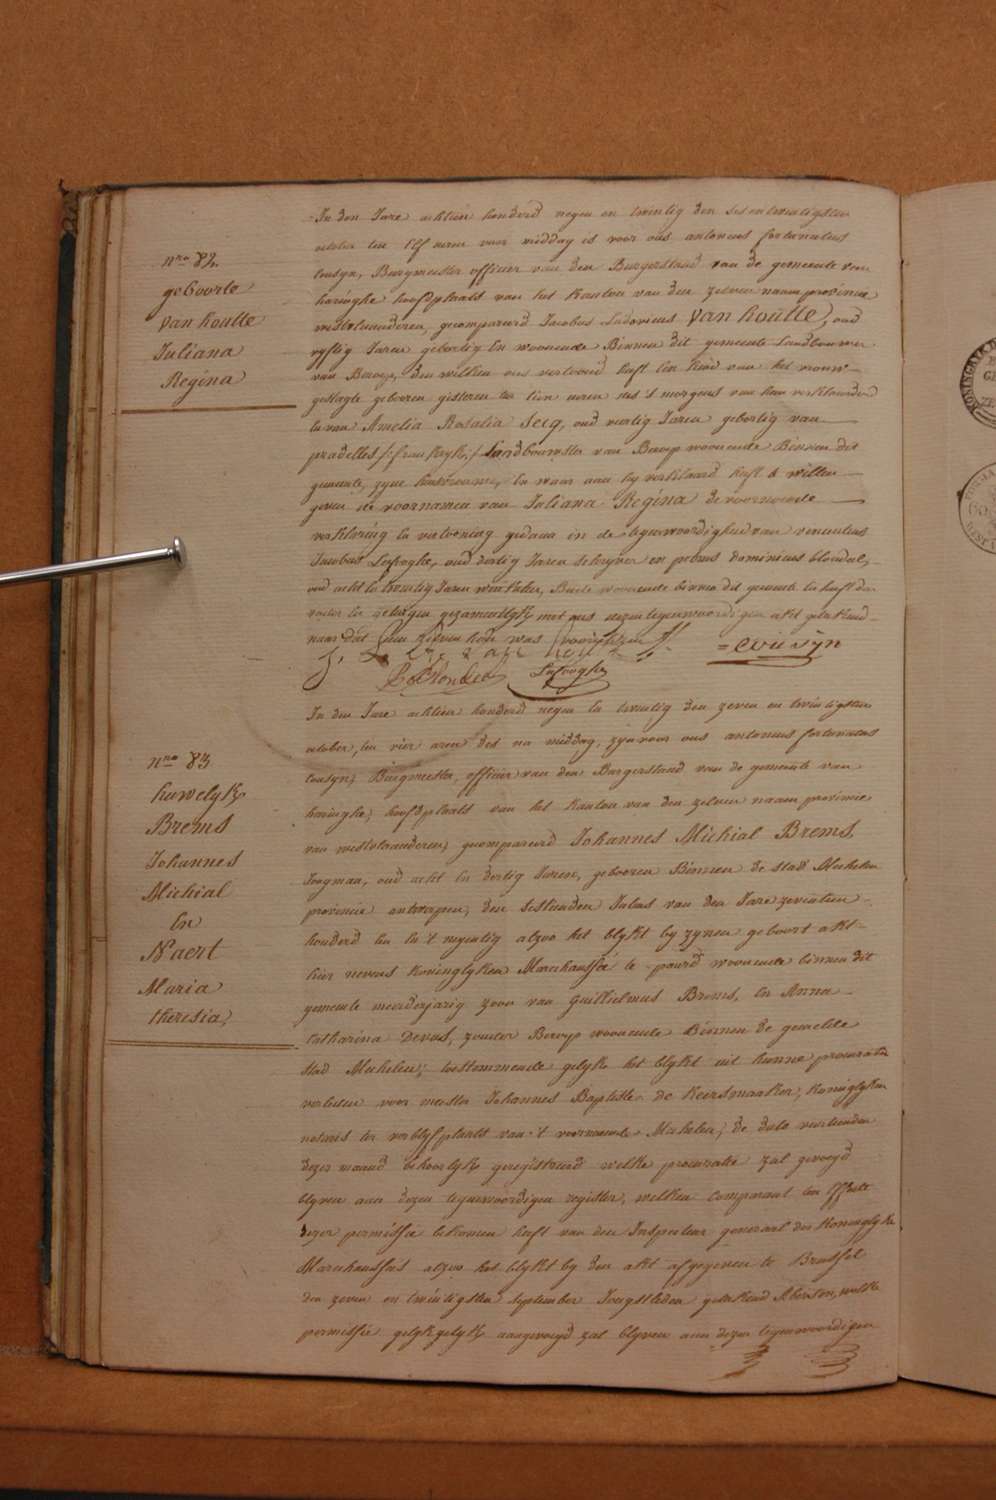 nro 82.
geboorte
van houtte
Juliana
Regina
In den Jare achtien honderd negen en twintig den sesentwintigsten
october ten Elf uren voor middag is voor ons antonius fortunatus
Cousyn, Burgmeester officier van den Burgerstand van de gemeente van
haringhe hoofdplaats van het kanton van den zelven naam provincie
westvlaanderen, gecompareerd Jacobus Ludovicus van houtte, oud
vyftig Jaren gebortig En woonende Binnen dit gemeente Landbouwer
van Beroep, den welken ons vertoond heeft Een kind van het vrouw-
geslagte geboren gisteren ten tien uren des 's morgens van hem verklaarder
En van Amelia Rosalia Secq, oud veertig Jaren gebortig van
pradelles /:frankryk:/ Landbouwster van Beroep woonende Binnen dit
gemeente, zyne huisvrouwe, En waer aen hy verklaard heeft te willen
geven de voornamen van Juliana Regina de voornoemde
verklaring En vertooning gedaan in de tegenwoordigheid van vincentius
Jacobus Lafoghe, oud dertig Jaren schryver en petrus dominicus blondel,
oud acht En twintig Jaren, Beide woonende binnen dit gemeente En heeft den
vader En getuigen gezamentlyk met ons dezen tegenwoordigen akt geteekend
naer dat hun zelven hun was voorgelezen.
J: L: van houtte = Cousyn
P: Blondel Lafoghe
nro 83.
huwelyk
Brems
Johannes
Michial
En
Naert
Maria
theresia,
In den Jare achtien honderd negen En twintig den zeven en twintigsten
october, ten vier uren des na middag, zyn voor ons antonius fortunatus
Cousyn, Burgmeester, officier van den Burgerstand van de gemeente van
haringhe, hoofdplaats van het kanton van den zelven naam provincie
van westvlaanderen, gecompareerd Johannes Michial Brems,
Jongman, oud acht En dertig Jaren, geboren Binnen de stad Mechelen
provincie antwerpen, den sestienden Julius van den Jare zeventien
honderd Een En 't negentig alzoo het blykt by zynen geboort akt
hier nevens koninglyken Marechaussée te paard woonende binnen dit
gemeente meerderjarig zoon van Guillielmus Brems, En Anna
Catharina Devus, zonder Beroep woonende Binnen de gemelde
stad Mechelen; toestemmende gelyk het blykt uit hunne procuratie
verleden voor meester Johannes Baptiste de Keersmaeker, koninglyken
notaris ter verblyfplaats van 't voornoemde Mechelen; de dato veertienden
dezer maand behoorlyk geregistreerd welke procuratie zal gevoegd
blyven aan dezen tegenwoordigen register, welken comparant ten Effecte
dezer permissie bekomen heeft van den Inspecteur generaal der koninglyke
Marechaussees alzoo het blykt by den akt afgegeven te Brussel
den zeven en twintigsten september Jongstleden geteekend, welke
permissie gelykgelyk aangevoegd zal blyven aan dezen tegenwoordigen